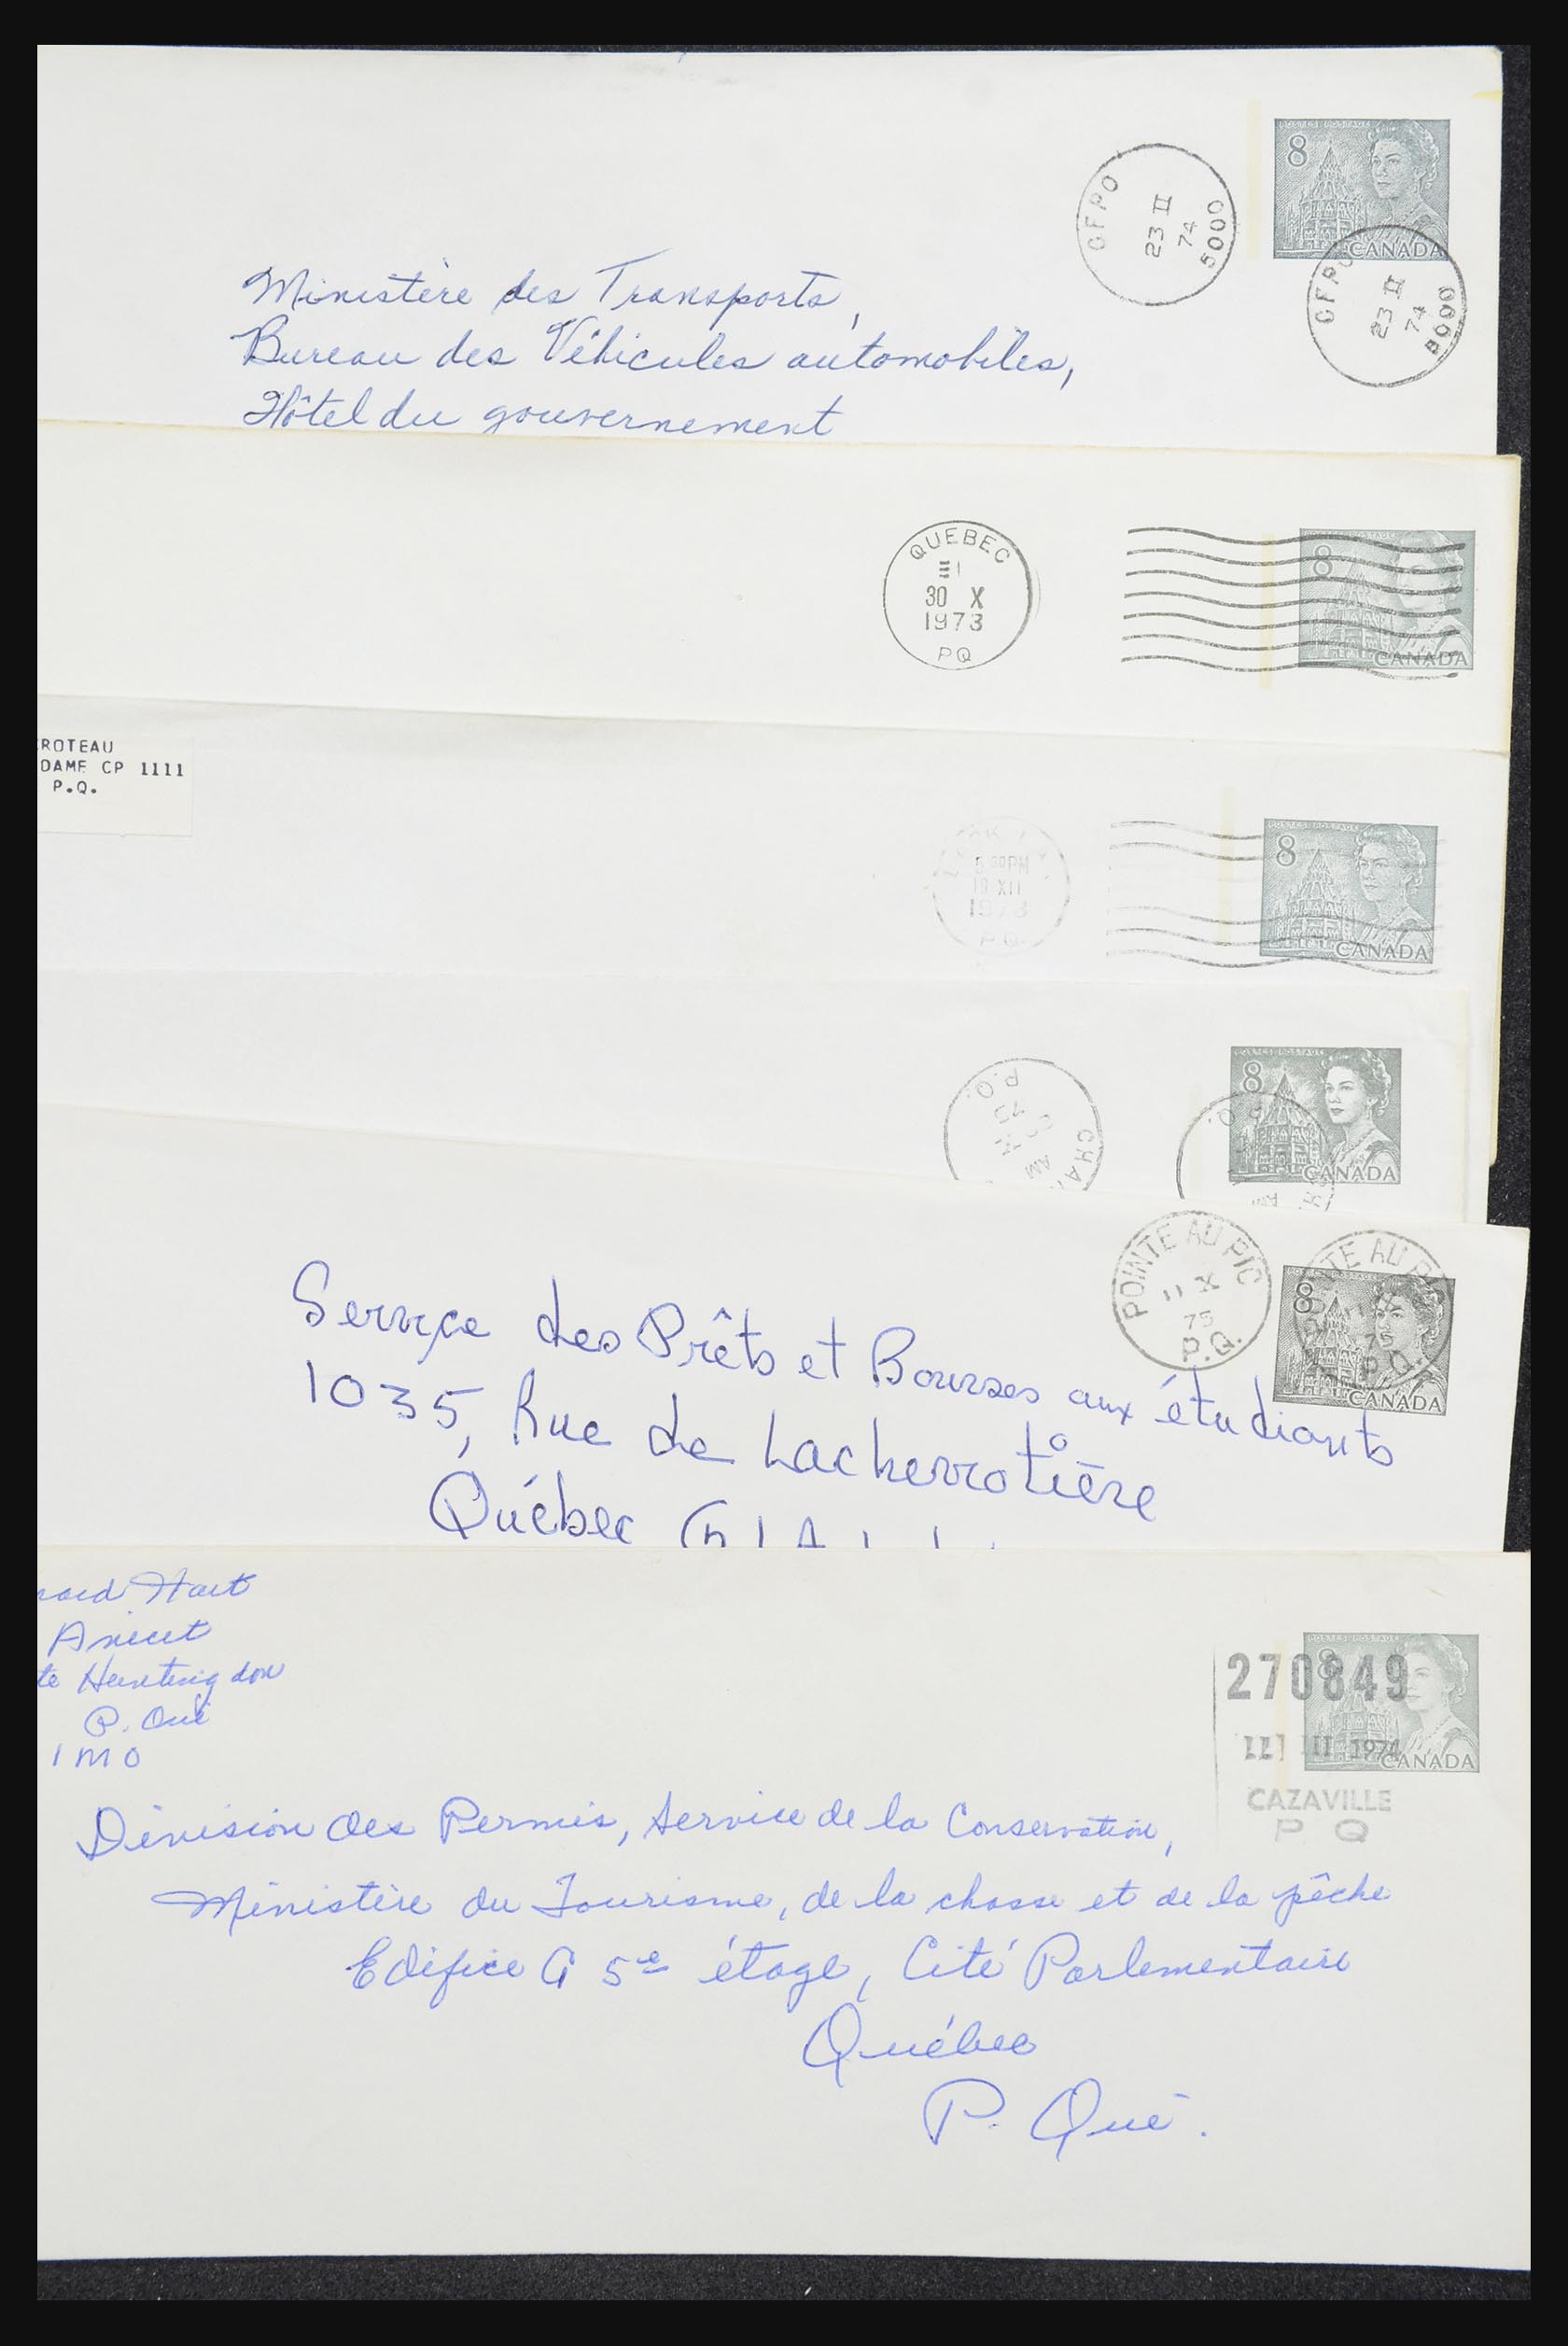 POSTES POSTAGE
8
CANADA
CFPO
23 II
74
5000
CFPO
23 II
74
5000
Ministère des Transports,
Bureau des Véhicules automobiles,
Hôtel du gouvernement
QUEBEC
30 X
1973
PQ
POSTES POSTAGE
8
CANADA
ROTEAU
DAME CP 1111
P.Q.
PM
XII
1973
P.Q.
POSTES POSTAGE
8
CANADA
P.Q.
75
AM
CHA
P.Q.
AM
POSTES POSTAGE
8
CANADA
POINTE AU PIC
11 X
75
P.Q.
TE AU P
P.Q.
8
CANADA
Service des Prêts et Bourses aux étudiants
1035, Rue de Lachevrotière
Québec
Hart
Anicet
te Huntingdon
P. Que
1M0
POSTES POSTAGE
8
CANADA
270849
III 1974
CAZAVILLE
P Q
Division des Permis, Service de la Conservation,
Ministère du Tourisme, de la chasse et de la pêche
Edifice G 5e étage, Cité Parlementaire
Québec
P. Qué.